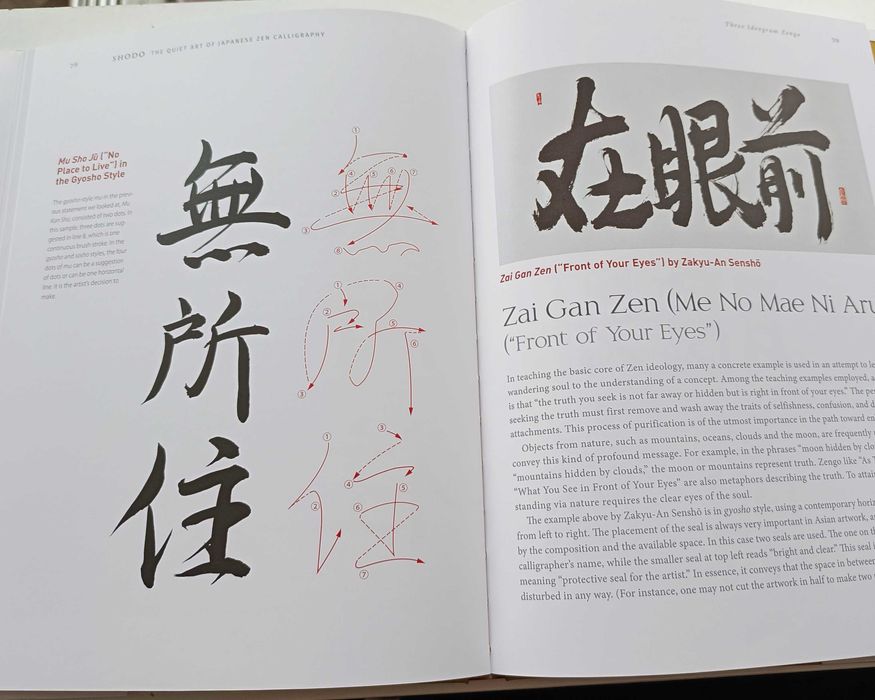 78
SHODO THE QUIET ART OF JAPANESE ZEN CALLIGRAPHY
Mu Sho Jū ("No
Place to Live") in
the Gyosho Style
The gyosho-style mu in the previ-
ous statement we looked at, Mu
Kan Shu, consisted of two dots. In
this sample, three dots are sug-
gested in line 8, which is one
continuous brush stroke. In the
gyosho and sosho styles, the four
dots of mu can be a suggestion
of dots or can be one horizontal
line. It is the artist's decision to
make.
無
所
住
1
2
3
4
5
6
7
8
1
2
3
4
5
6
1
2
3
4
5
6
7
Three Ideogram Zengo
79
在眼前
Zai Gan Zen ("Front of Your Eyes") by Zakyu-An Senshō
Zai Gan Zen (Me No Mae Ni Aru
("Front of Your Eyes")
In teaching the basic core of Zen ideology, many a concrete example is used in an attempt to
wandering soul to the understanding of a concept. Among the teaching examples employed,
is that "the truth you seek is not far away or hidden but is right in front of your eyes." The
seeking the truth must first remove and wash away the traits of selfishness, confusion, and
attachments. This process of purification is of the utmost importance in the path toward
Objects from nature, such as mountains, oceans, clouds and the moon, are frequently
convey this kind of profound message. For example, in the phrases "moon hidden by
"mountains hidden by clouds," the moon or mountains represent truth. Zengo like "As
"What You See in Front of Your Eyes" are also metaphors describing the truth. To
standing via nature requires the clear eyes of the soul.
The example above by Zakyu-An Senshō is in gyosho style, using a contemporary
from left to right. The placement of the seal is always very important in Asian artwork,
by the composition and the available space. In this case two seals are used. The one on
calligrapher's name, while the smaller seal at top left reads "bright and clear." This seal
meaning "protective seal for the artist." In essence, it conveys that the space in between
disturbed in any way. (For instance, one may not cut the artwork in half to make two